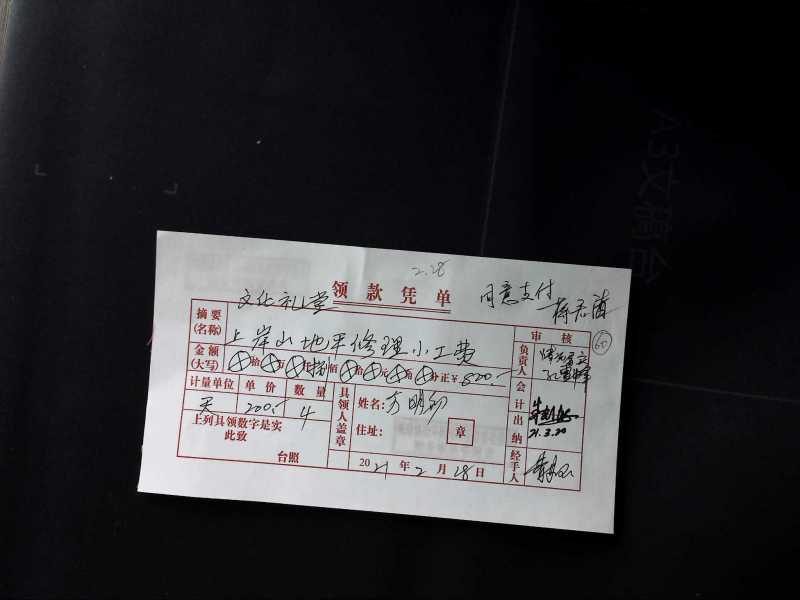 A3文稿台
2.28
文化礼堂 领款凭单 同意支付
摘要(名称) 上岸山地平修理小工费
审核
65
金额(大写) ⊗拾⊗万⊗仟捌佰⊗拾⊗元⊗角⊗分正¥800.-
负责人 情况属实
计量单位 单价 数量
天 200.- 4
具领人盖章
姓名: 方明
住址: 章
会计
出纳 21.3.20
上列具领数字是实
此致
台照
2021年2月28日
经手人